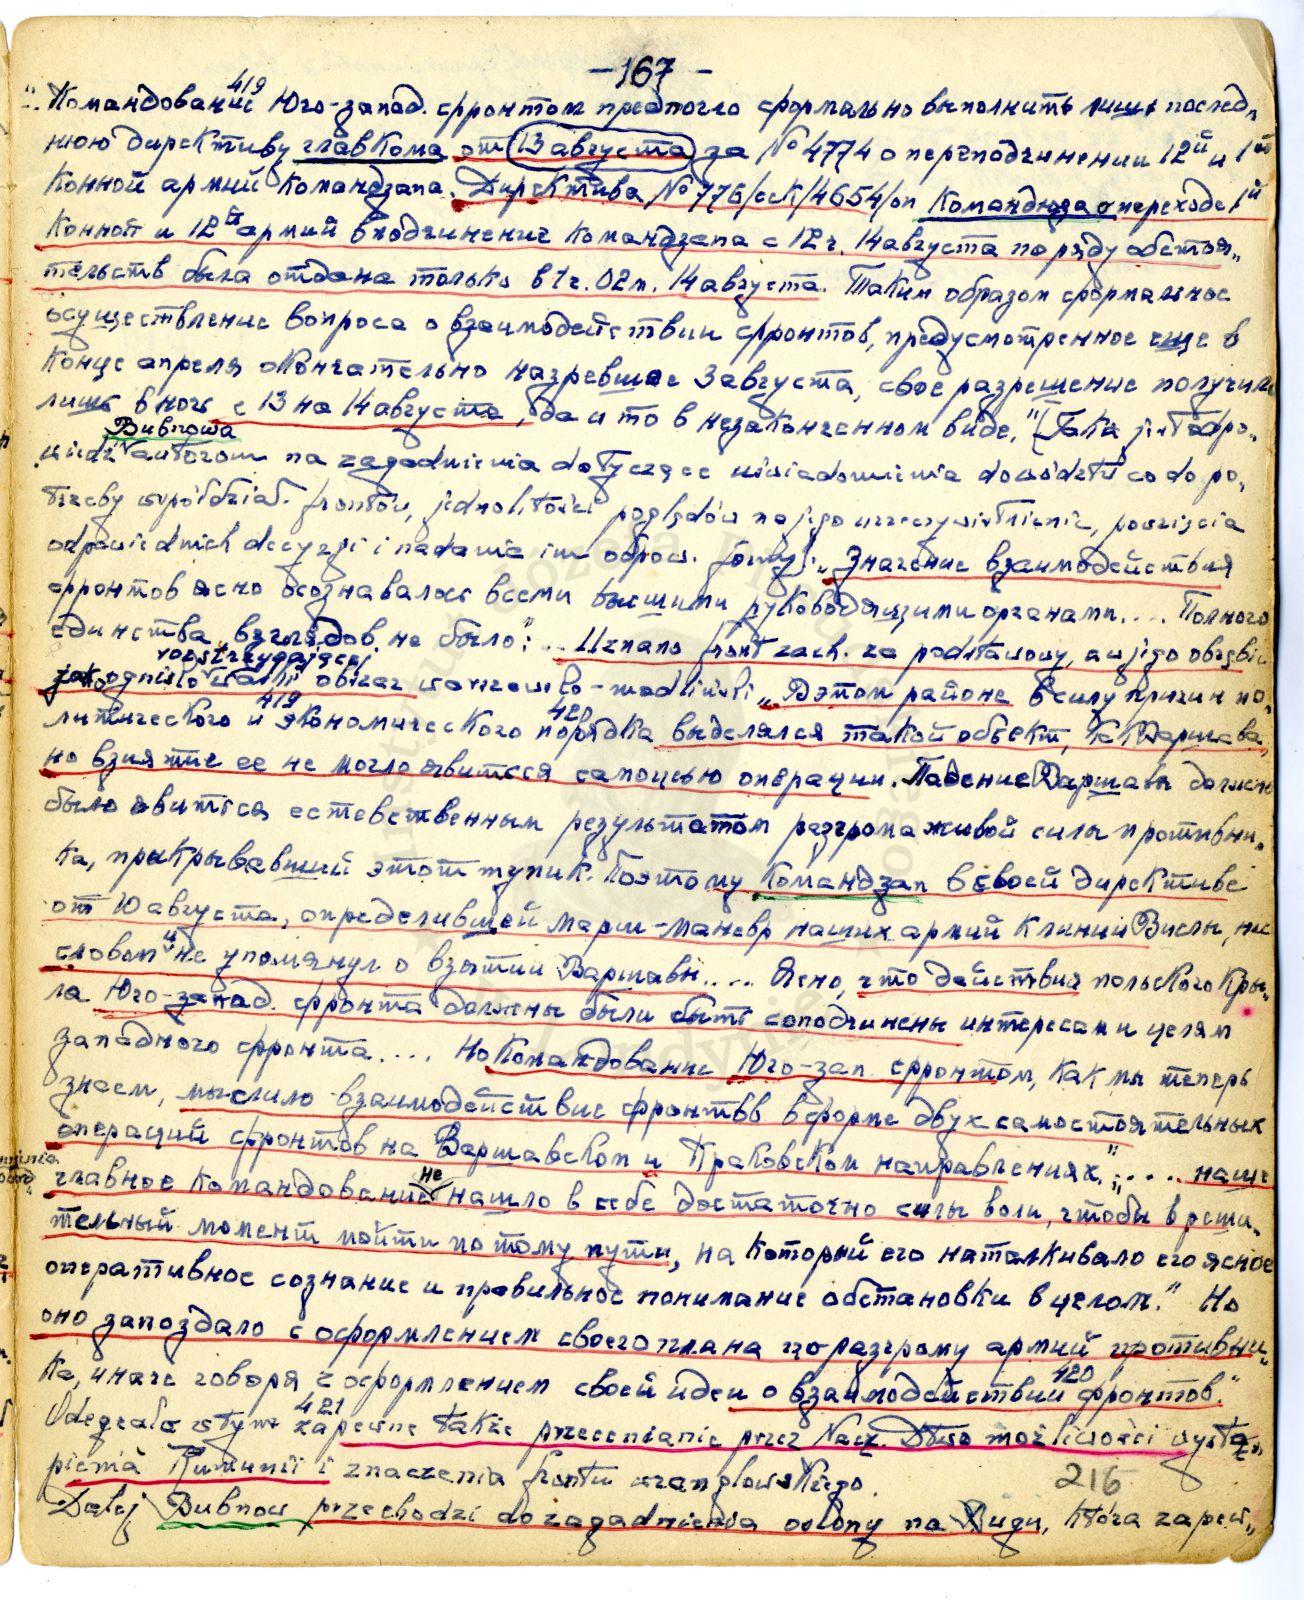 – 167 –
419
".. Командование Юго-запад. фронтом предпочло формально выполнить лишь послед„
нюю директиву главкома от 13 августа за № 4774 о переподчинении 12й и 1ой
Конной армий Командзапа. Директива № 776/сек/4654/оп Командюза о переходе 1й
Конной и 12й армий в подчинение командзапа с 12 ч. 14 августа по ряду обстоя„
тельств была отдана только в 1 ч. 02 м. 14 августа. Таким образом формальное
осуществление вопроса о взаимодействии фронтов, предусмотренное еще в
конце апреля окончательно назревшее 3 августа, свое разрешение получило
лишь в ночь с 13 на 14 августа, да и то в незаконченном виде." (Taka jest odpo„
Bubnowa
wiedź autorom na zagadnienia dotyczące uświadomienia dowództw co do po„
trzeby współdział. frontów, jednolitości poglądów na jego urzeczywistnienie, powzięcia
odpowiednich decyzji i nadania im odpow. formy): „Значение взаимодействия
фронтов ясно осознавалось всеми высшими руководящими органами.... Полного
единства взглядов не было": .. Uznano front zach. za podstawowy, a w jego obrębie
rozstrzygającej
jako ognisko walki obszar warszawsko-modliński „В этом районе в силу причин по„
419 420
литического и экономического порядка выделялся такой объект, как Варшава,
но взятие ее не могло явиться самоцелью операции. Падение Варшавы должно
было явиться естественным результатом разгрома живой силы противни„
ка, прикрывавший этот тупик. Поэтому Командзап в своей директиве
от 10 августа, определившей марш-маневр наших армий к линии Вислы, ни
словом и не упомянул о взятии Варшавы.... Ясно, что действия польского кры„
ла Юго-запад. фронта должны были быть соподчинены интересам и целям
западного фронта.... Но командование Юго-зап. фронтом, как мы теперь
знаем, мыслило взаимодействие фронтов в форме двух самостоятельных
операций фронтов на Варшавском и Краковском направлениях."; „.... наше
не
главное командование нашло в себе достаточно силы воли, чтобы в реши„
тельный момент пойти по тому пути, на который его наталкивало его ясное
оперативное сознание и правильное понимание обстановки в целом." Но
оно запоздало с оформлением своего плана по разгрому армий противни„
ка, иначе говоря с оформлением своей идеи о взаимодействии фронтов."
420
421
Odegrało w tym zapewne także przecenianie przez Nacz. Dtwo możliwości wystą„
pienia Rumunii i znaczenia frontu wranglowskiego.
216
Dalej Bubnow przechodzi do zagadnienia osłony na Bugu, która zapew„